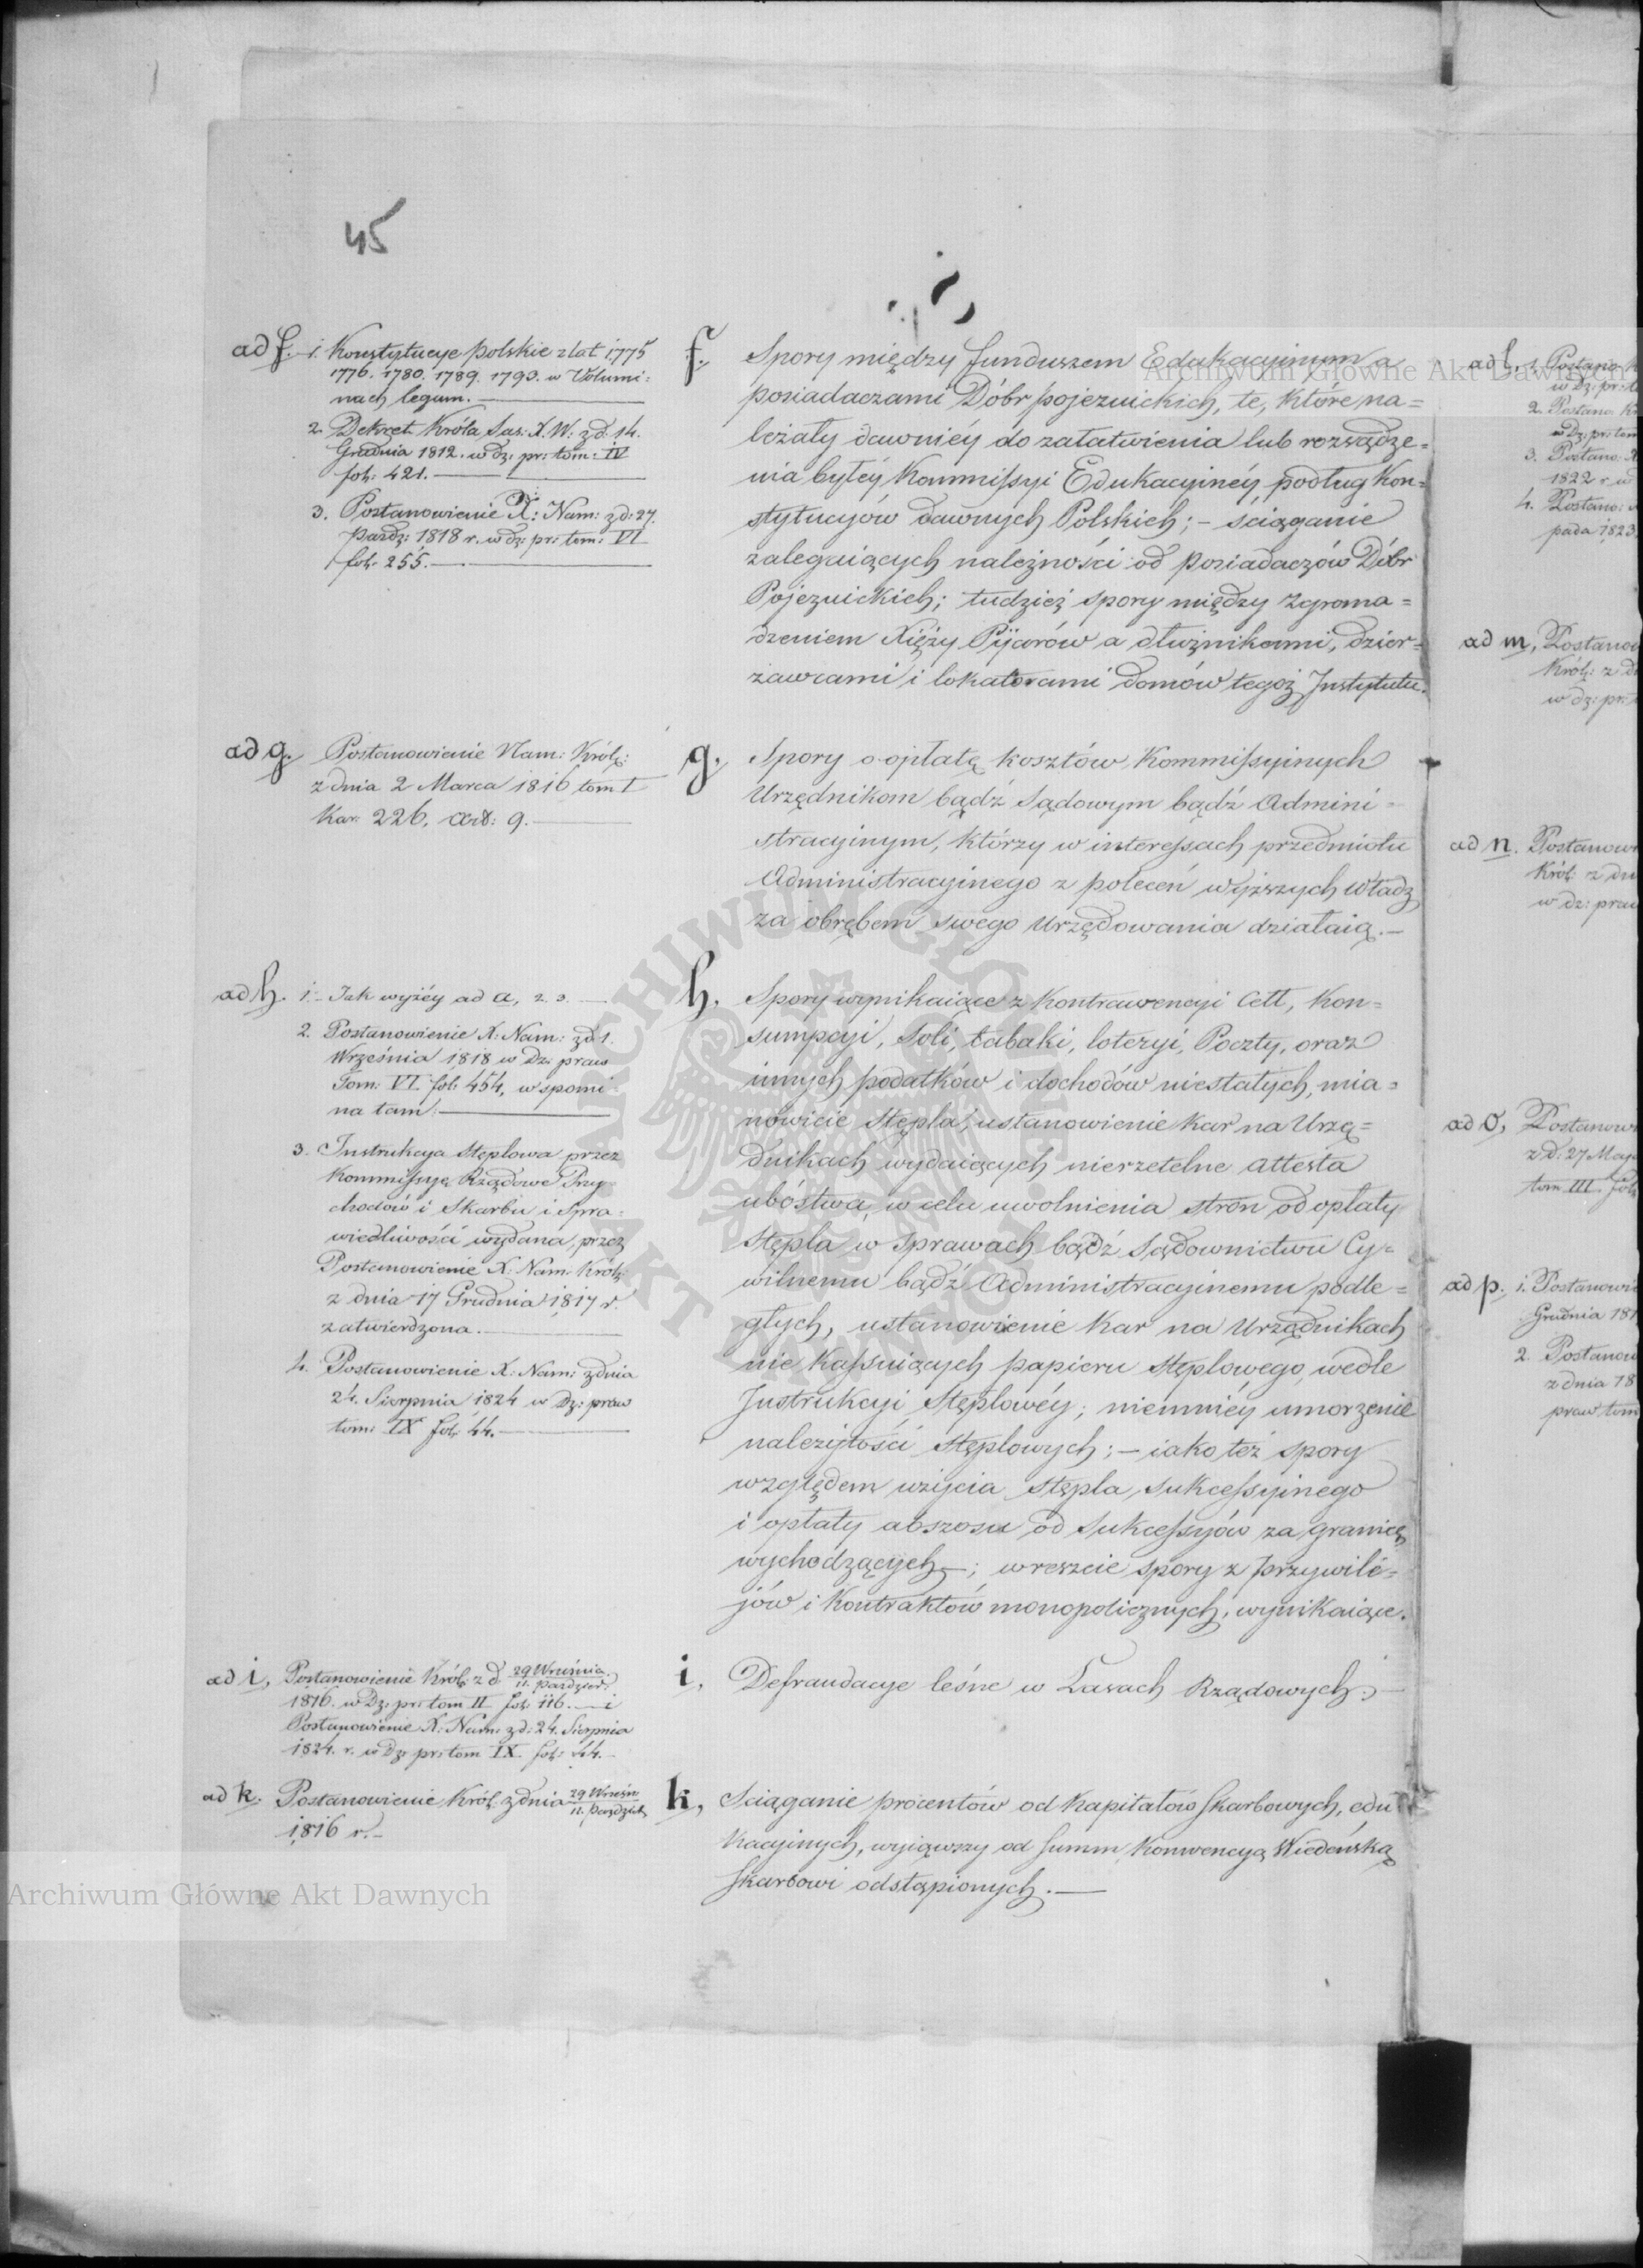 45
ad f. 1. Konstytucye polskie z lat 1775
1776. 1780. 1789. 1793. w Volumi:
nach legum.
2. Dekret Króla Sas: X. W: z d. 14.
Grudnia 1812. w dz: pr: tom: IV
fol: 421.
3. Postanowienie X: Nam: z d: 27.
Paźdz: 1818 r. w dz: pr: tom: VI
fol: 255.
f. Spory między funduszem Edukacyinym a
posiadaczami Dóbr pojezuickich, te, które na=
leżały dawniéy do załatwienia lub rozsądze=
nia byłéy Kommissyi Edukacyinéy, podług Kon=
stytucyów dawnych Polskich; – ściąganie
zaleguiących należności od posiadaczów Dóbr
Pojezuickich; tudzież spory między zgroma=
dzeniem Xięży Pijarów a dłużnikami, dzier=
żawcami i lokatorami domów tegoż Instytutu.
ad g. Postanowienie Nam: Król:
z dnia 2 Marca 1816 tom I
Kar. 226. art: 9.
g. Spory o opłatę kosztów Kommissyinych
Urzędnikom bądź Sądowym bądź Admini=
stracyinym, którzy w interessach przedmiotu
Administracyinego z poleceń wyższych Władz
za obrębem swego Urzędowania działaią. –
ad h. 1. Jak wyżéy ad a, 2. 3.
2. Postanowienie X: Nam: z d 1.
Września 1818 w Dz: praw
Tom: VI. fol: 454, w spomi
na tam.
3. Instrukcya Stęplowa przez
Kommissye Rządowe Przy
chodów i Skarbu i Spra=
wiedliwości wydana, przez
Postanowienie X: Nam: Król:
z dnia 17 Grudnia 1817 r.
zatwierdzona.
4. Postanowienie X: Nam: z dnia
24. Sierpnia 1824 w Dz: praw
tom: IX fol: 44.
h. Spory wynikaiące z kontrawencyi Cell, Kon=
sumpcyi, Soli, tabaki, loteryi, Poczty, oraz
innych podatków i dochodów niestałych, mia=
nowicie Stępla; ustanowienie kar na Urzę=
dnikach wydaiących nierzetelne attesta
ubóstwa, w celu uwolnienia stron od opłaty
Stępla w Sprawach bądź Sądownictwu Cy=
wilnemu bądź Administracyinemu podle=
głych, ustanowienie kar na Urzędnikach
nie kassuiących papieru stęplowego, wedle
Instrukcyi Stęplowéy; niemniéy umorzenie
należytości Stęplowych; – iako też spory
względem użycia Stępla, sukcessyinego
i opłaty abszosu od Sukcessyów za granicę
wychodzących –; wreszcie spory z przywile=
jów i kontraktów monopolicznych, wynikaiące.
ad i, Postanowienie Król: z d 29 Września
11. Paździer:
1816. w Dz: pr: tom II fol: 116. – i
Postanowienie X: Nam: z d: 24. Sierpnia
1824. r. w Dz: pr: tom IX. fol: 44.
i, Defraudacye leśne w Lasach Rządowych; –
ad k. Postanowienie Król: z dnia 29 Wrześn:
11. Paździer:
1816 r. –
k, Sciąganie procentów od Kapitałów Skarbowych, edu
kacyinych, wyiąwszy od Summ Konwencyą Wiedeńską
Skarbowi odstąpionych. –
ad l, 1. Postano
w dz: pr: t
2. Postano: Kr
w Dz: pr: tom
3. Postano: X
1822 r. w
4. Postano:
pada 1823.
ad m, Postanow
Król: z d
w dz: pr:
ad n. Postanowi
Król: z dn
w dz: praw
ad o, Postanowi
z d: 27 Maja
tom III. fol:
ad p. 1. Postanowie
Grudnia 181
2. Postanow
z dnia 18
praw tom
Archiwum Główne Akt Dawnych
Archiwum Główne Akt Dawnych
ARCHIWUM GŁÓWNE
AKT DAWNYCH